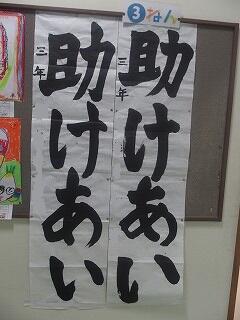 ③ねん
助けあい
三年
助けあい
三年